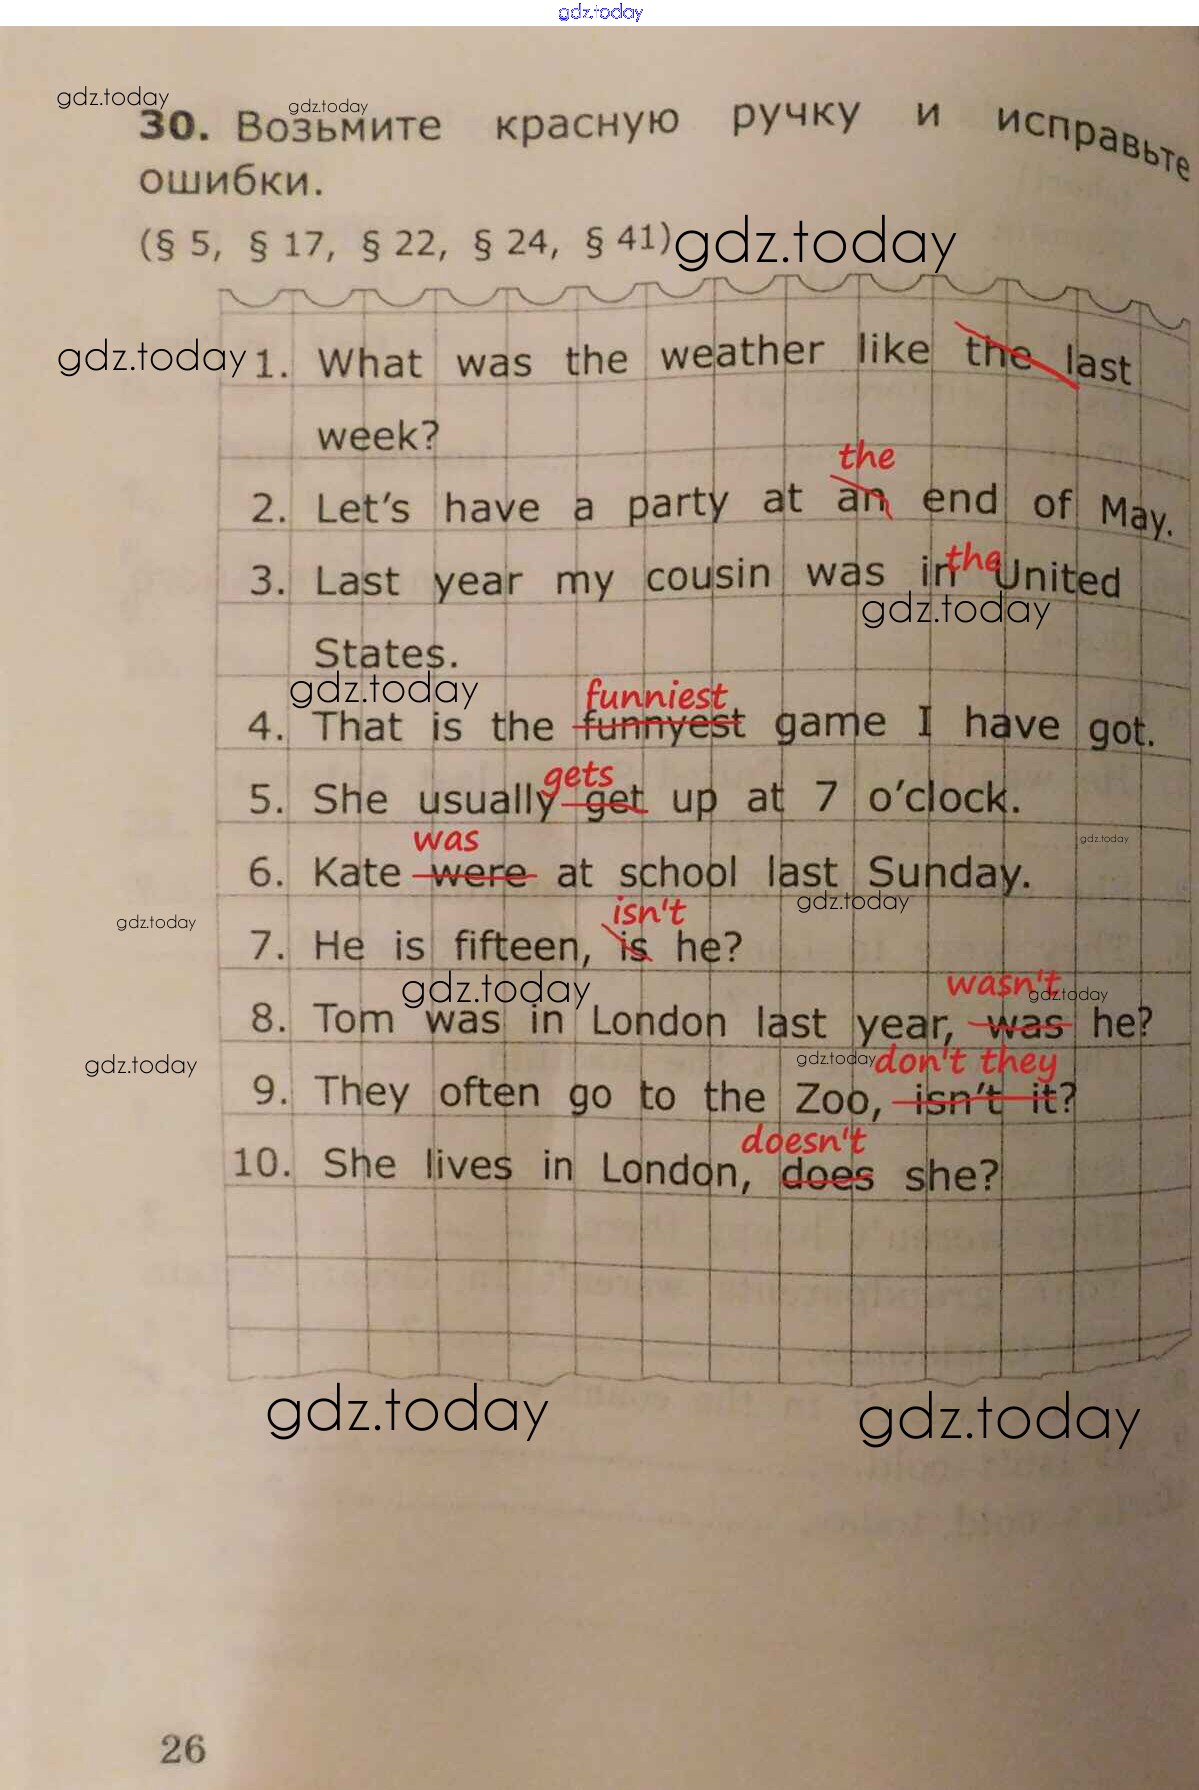 gdz.today
gdz.today
gdz.today
30. Возьмите красную ручку и исправьте
ошибки.
(§ 5, § 17, § 22, § 24, § 41)
gdz.today
gdz.today
1. What was the weather like the last
week?
the
2. Let's have a party at an end of May.
the
3. Last year my cousin was in United
gdz.today
States.
gdz.today
funniest
4. That is the funnyest game I have got.
gets
5. She usually get up at 7 o'clock.
was
gdz.today
6. Kate were at school last Sunday.
gdz.today
gdz.today
isn't
7. He is fifteen, is he?
gdz.today
wasn't
gdz.today
8. Tom was in London last year, was he?
gdz.today
gdz.today
don't they
9. They often go to the Zoo, isn't it?
doesn't
10. She lives in London, does she?
gdz.today
gdz.today
26